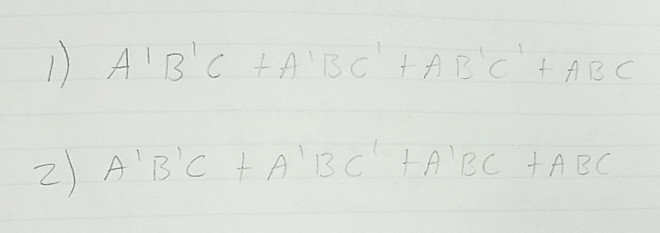 1) A'B'C + A'BC' + AB'C' + ABC
2) A'B'C + A'BC' + A'BC + ABC